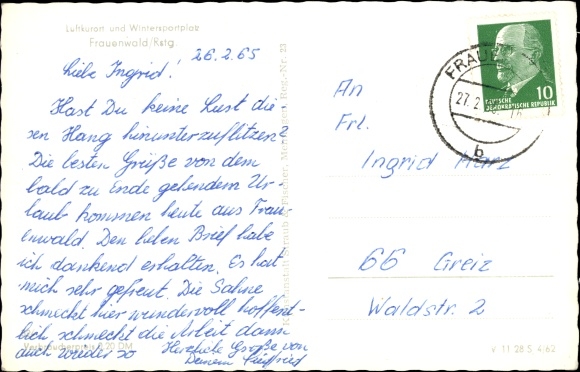 Luftkurort und Wintersportplatz
Frauenwald/Rstg.
26.2.65
Liebe Ingrid!
Hast Du keine Lust die-
sen Hang hinunterzuflitzen?
Die besten Grüße von dem
bald zu Ende gehendem Ur-
laub kommen heute aus Frau-
enwald. Den lieben Brief habe
ich dankend erhalten. Es hat
mich sehr gefreut. Die Sahne
schmeckt hier wundervoll hoffent-
lich schmeckt die Arbeit dann
auch wieder so
Herzliche Grüße von
Deinem Siegfried
Verbraucherpreis 0,20 DM
An
Frl.
Ingrid März
66 Greiz
Waldstr. 2
V 11 28 S 4/62
10
DEUTSCHE
DEMOKRATISCHE REPUBLIK
27.2.
b